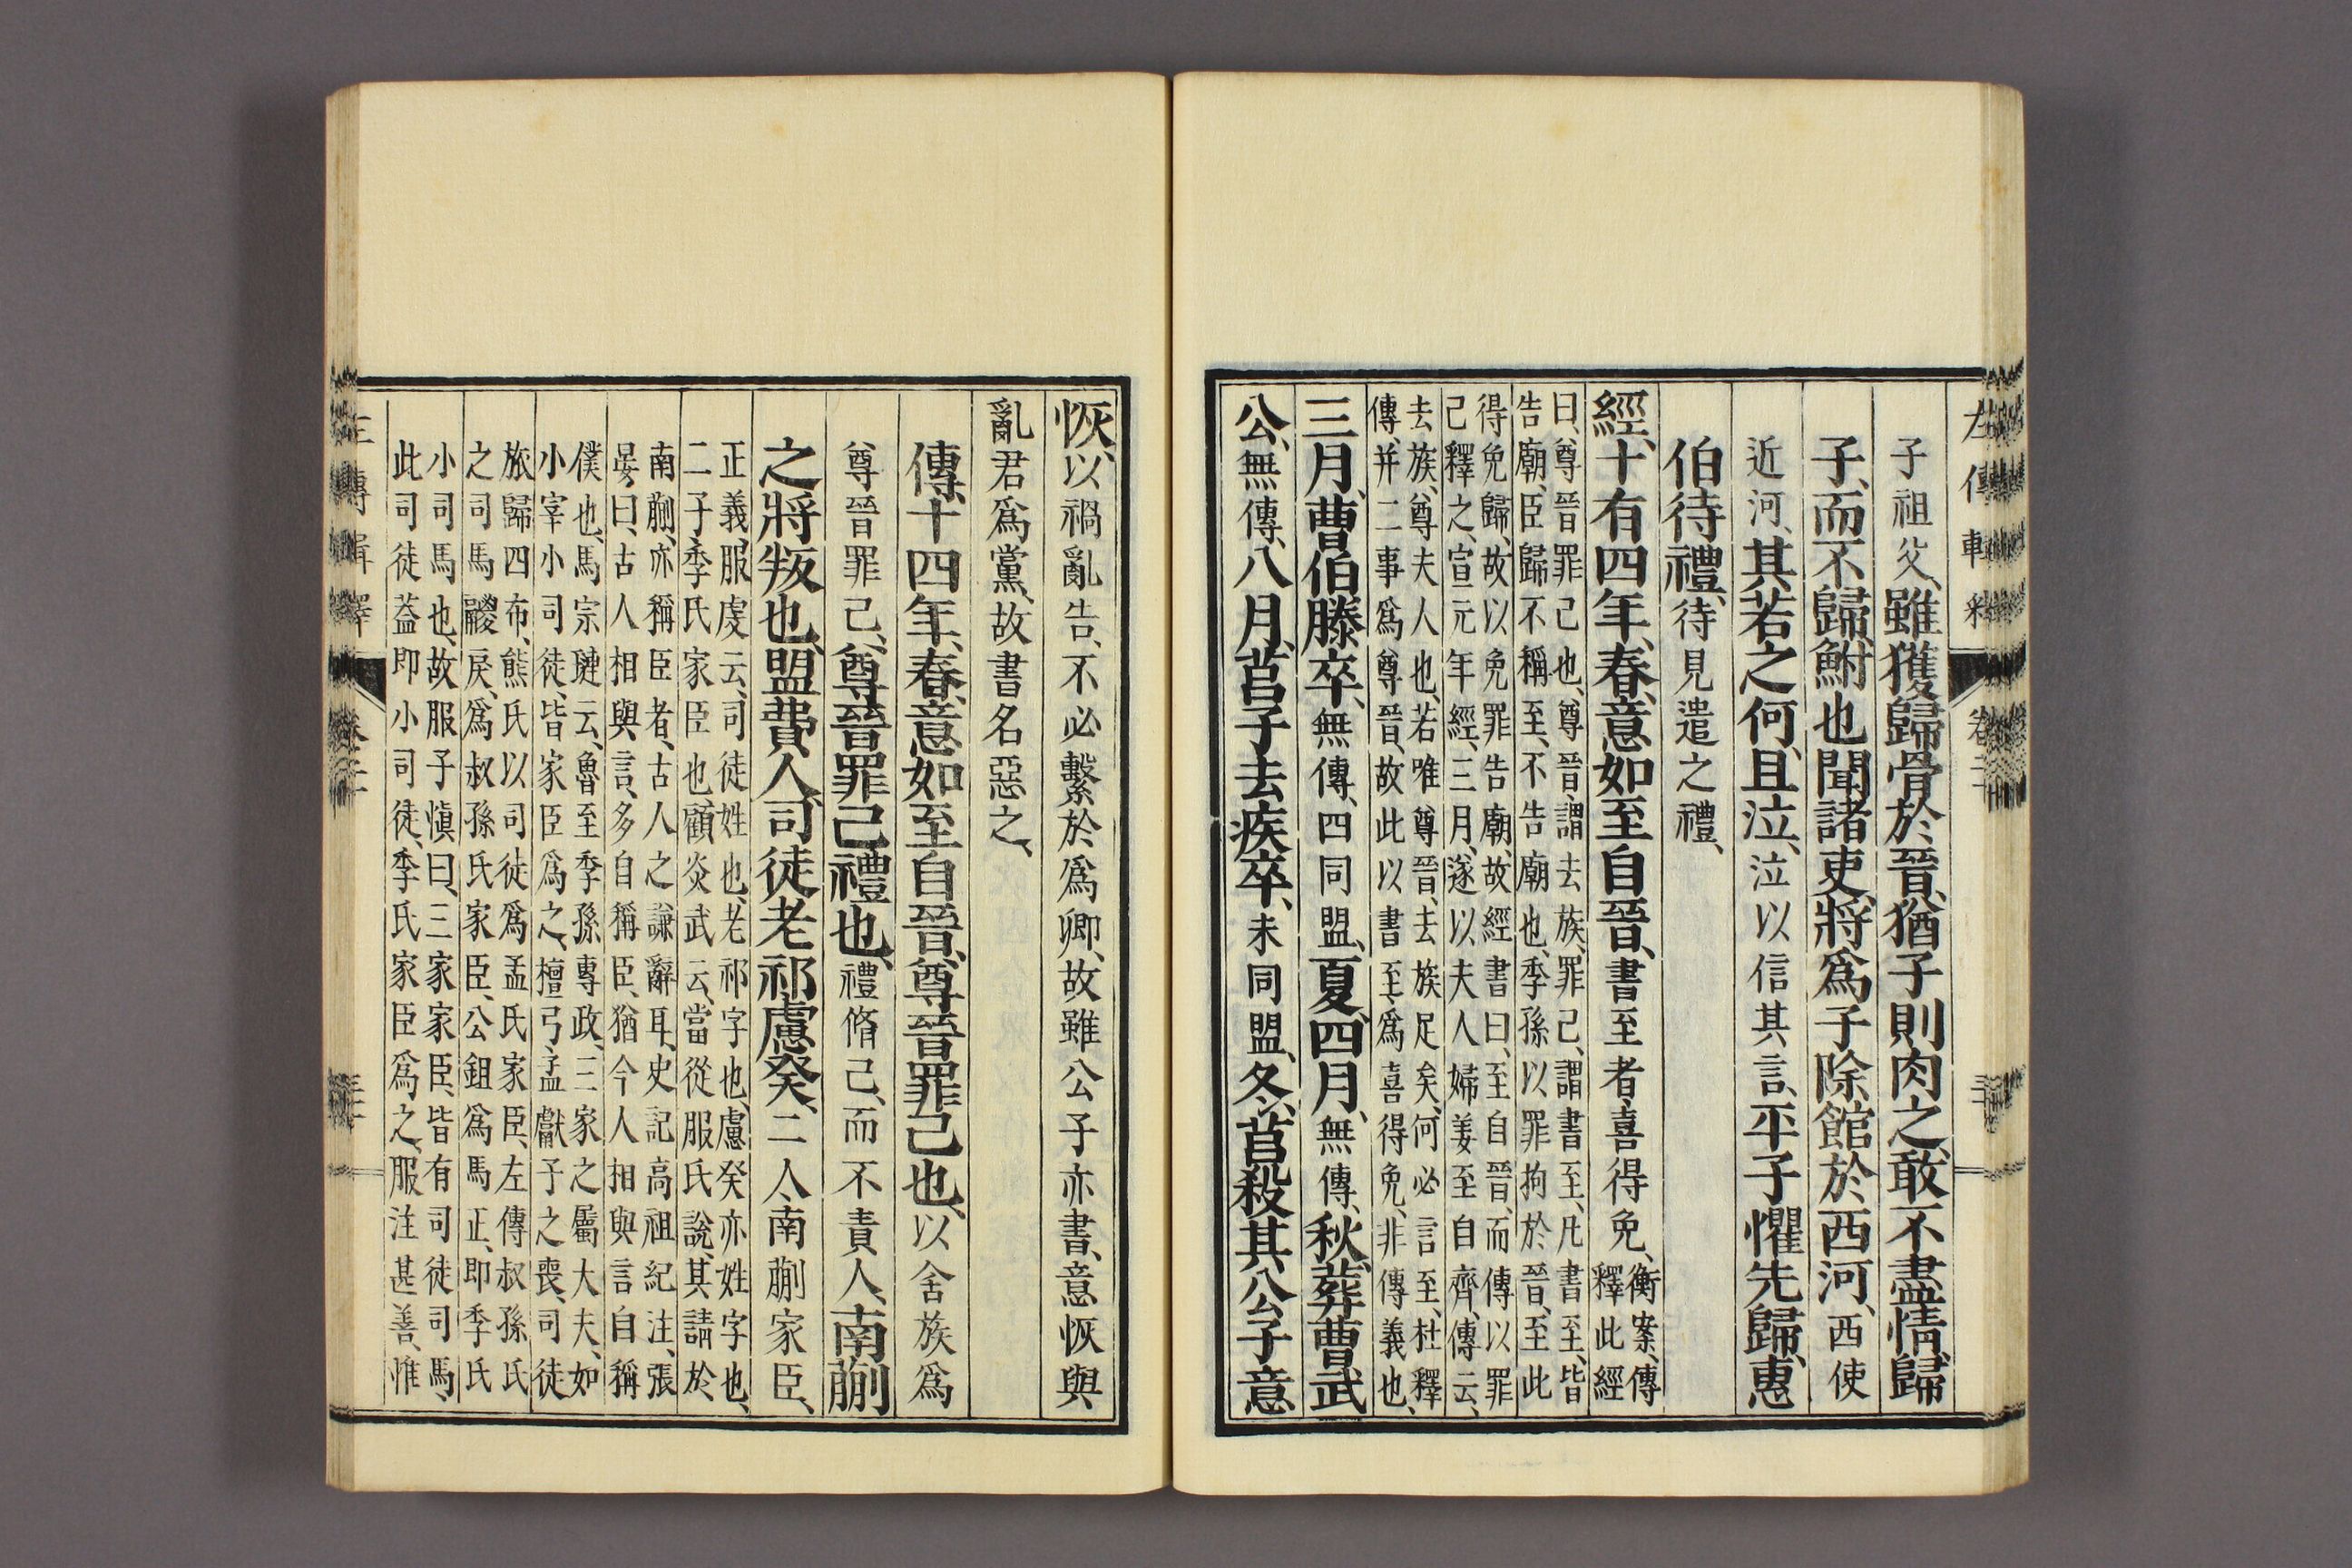 子祖父、雖獲歸骨於晉、猶子則肉之、敢不盡情、歸
子、而不歸、鮒也聞諸吏、將爲子除館於西河、西使
近河、其若之何、且泣、泣以信其言、平子懼先歸、惠
伯待禮、待見遣之禮、
經、十有四年、春、意如至自晉、書至者、喜得免、衡案、傳
釋此經
曰、尊晉罪己也、尊晉、謂去族、罪己、謂書至、凡書至、皆
告廟、臣歸不稱至、不告廟也、季孫以罪拘於晉、至此
得免歸、故以免罪告廟、故經書曰、至自晉、而傳以罪
己釋之、宣元年經、三月、遂以夫人婦姜至自齊、傳云、
去族、尊夫人也、若唯尊晉、去族足矣、何必言至、杜釋
傳、并二事爲尊晉、故此以書至、爲喜得免、非傳義也、
三月、曹伯滕卒、無傳、四同盟、夏、四月、無傳、秋、葬曹武
公、無傳、八月、莒子去疾卒、未同盟、冬、莒殺其公子意
恢、以禍亂告、不必繫於爲卿、故雖公子亦書、意恢與
亂君爲黨、故書名惡之、
傳、十四年、春、意如至自晉、尊晉罪己也、以舍族爲
尊晉罪己、尊晉罪己禮也、禮脩己、而不責人、南蒯
之將叛也、盟費人、司徒老祁慮癸、二人、南蒯家臣、
正義、服虔云、司徒姓也、老祁字也、慮癸亦姓字也、
二子、季氏家臣也、顧炎武云、當從服氏說、其請於
南蒯、亦稱臣者、古人之謙辭耳、史記高祖紀注、張
晏曰、古人相與言、多自稱臣、猶今人相與言自稱
僕也、馬宗璉云、魯至季孫專政、三家之屬大夫、如
小宰小司徒、皆家臣爲之、檀弓、孟獻子之喪、司徒
旅歸四布、熊氏以司徒爲孟氏家臣、左傳叔孫氏
之司馬鬷戾、爲叔孫氏家臣、公鉏爲馬正、即季氏
小司馬也、故服子愼曰、三家家臣、皆有司徒司馬、
此司徒蓋即小司徒、季氏家臣爲之、服注甚善、惟